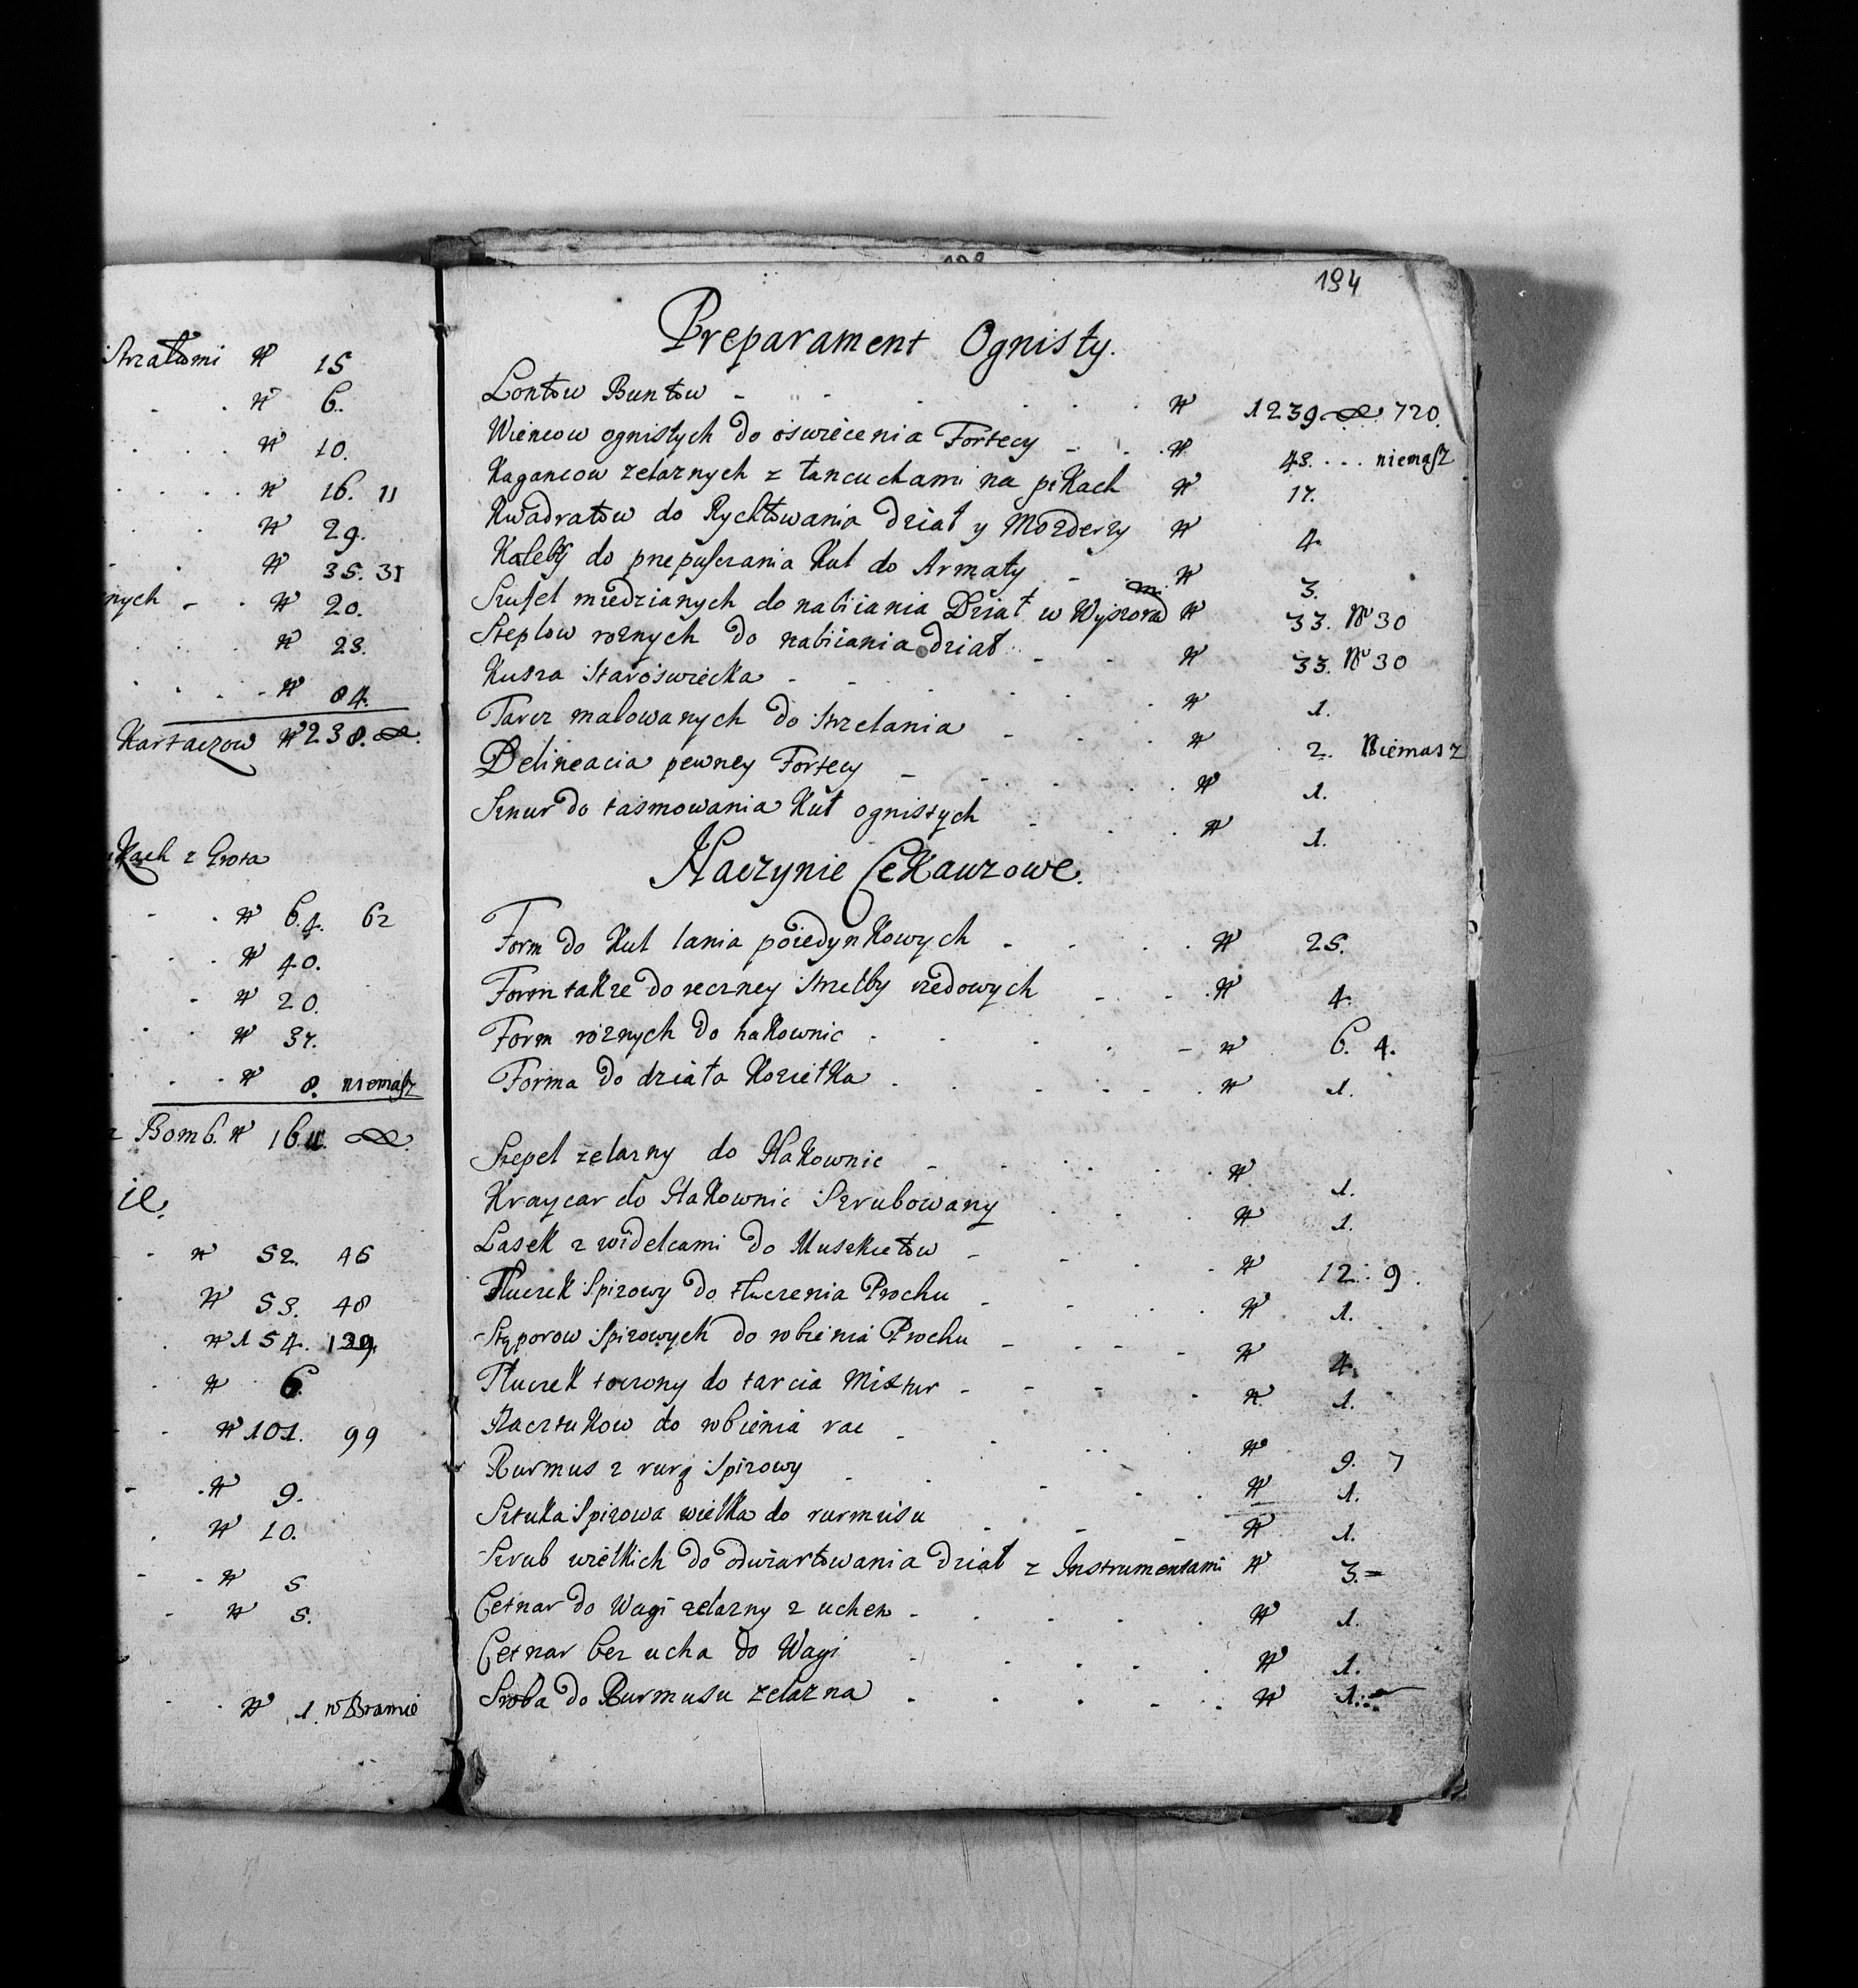 Strzałami № 15
№ 6.
№ 10.
№ 16. 11
№ 29.
№ 35. 31
nych - № 20.
№ 23.
№ 84.
Kartaczow № 238.
kach z Grota
№ 64. 62
№ 40.
№ 20.
№ 37.
№ 8. niemasz
Bomb. №
ie.
№ 52. 46
№ 53. 48
№ 154. 139
№ 6
№ 101. 99
№ 9.
№ 10.
№ 5
№ 5.
№ 1. w Bramie
194
Preparament Ognisty.
Lontow Buntow - № 1239 720.
Wiencow ognistych do oswiecenia Fortecy № 43. ... niemasz
Kagancow zelaznych z łancuchami na pikach № 17.
Kwadratow do Rychtowania dział y Mozderzy № 4.
Kolebki do przepuszczania Kul do Armaty № 3.
Szufel miedzianych do nabiiania Dział w Wyszorad m № 33. № 30
Steplow roznych do nabiiania dział № 33. № 30
Kusza staroswiecka № 1.
Tarcz malowanych do strzelania № 2. Niemasz
Delineacia pewney Fortecy № 1.
Sznur do tasmowania Kul ognistych № 1.
Naczynie Cekauzowe.
Form do Kul lania poiedynkowych № 25.
Form takze do reczney strzelby rzedowych № 4.
Form roznych do hakownic № 6. 4.
Forma do działa Kozielka № 1.
Stepel zelazny do Hakownic № 1.
Kraycar do Hakownic Szrubowany № 1.
Lasek z widelcami do Muszkietow № 12. 9.
Tłuczek Spizowy do tłuczenia Prochu № 1.
Stęporow Spizowych do wbiienia Prochu № 4.
Tłuczek toczony do tarcia Mixtur № 1.
Sztukow do wbiienia rac № 9. 7
Rurmus z rurą Spizowy № 1.
Sztuka Spizowa wielka do rurmusu № 1.
Szrub wielkich do odwiartowania dział z Instrumentami № 3.
Cetnar do Wagi zelazny z uchem № 1.
Cetnar bez ucha do Wagi № 1.
Sroba do Rurmusu zelazna № 1.